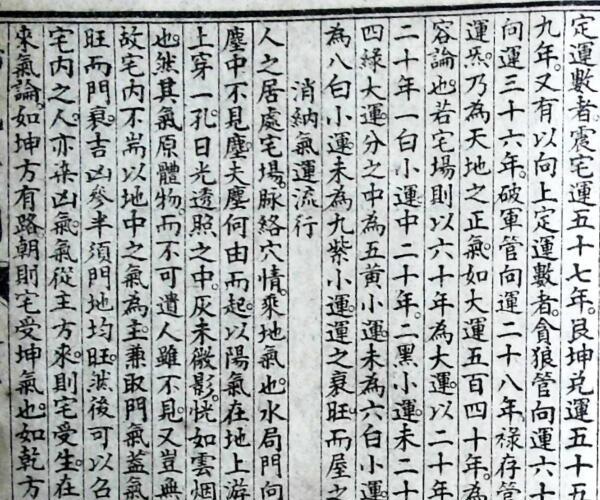 定運數者。震宅運五十七年。艮坤兌運五十五
九年。又有以向上定運數者。貪狼管向運六十
向運三十六年。破軍管向運二十八年。祿存管
運炁。乃為天地之正氣。如大運五百四十年。為
容論也。若宅場則以六十年為大運。以二十年
二十年一白小運。中二十年。二黑小運。末二十
四綠大運。分之中為五黃小運。末為六白小運。
為八白小運。末為九紫小運。運之衰旺。而屋之
消納氣運流行
人之居處宅場。脉絡穴情。乘地氣也。水局門向
塵中不見塵。夫塵何由而起。以陽氣在地上游
上穿一孔。日光透照之中。灰末微影。恍如雲烟
也。然其氣原體物。而不可遺人雖不見。又豈無
故宅內不耑以地中之氣為主。兼取門氣。蓋氣
旺而門衰。吉凶參半。須門地均旺。然後可以召
宅內之人。亦染凶氣。氣從生方來。則宅受生。在
來氣論。如坤方有路。朝則宅受坤氣也。如乾方